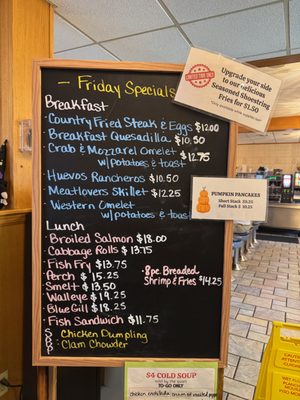 Friday Specials
Breakfast
· Country Fried Steak & Eggs $12.00
· Breakfast Quesadilla $10.50
· Crab & Mozzarel Omelet
w/potatoes & toast $12.75
· Huevos Rancheros $10.50
· Meatlovers Skillet $12.25
· Western Omelet
w/potatoes & toast
Lunch
· Broiled Salmon $18.00
· Cabbage Rolls $13.75
· Fish Fry $13.75
· Perch $15.25
· Smelt $13.50
· Walleye $19.25
· Blue Gill $18.25
· Fish Sandwich $11.75
· 8pc Breaded
Shrimp & Fries $14.25
Chicken Dumpling
Clam Chowder
LIMITED TIME ONLY
Upgrade your side
to our Delicious
Seasoned Shoestring
Fries for $1.50
PUMPKIN PANCAKES
Short Stack
Full Stack
$4 COLD SOUP
TO-GO ONLY
CAUTION